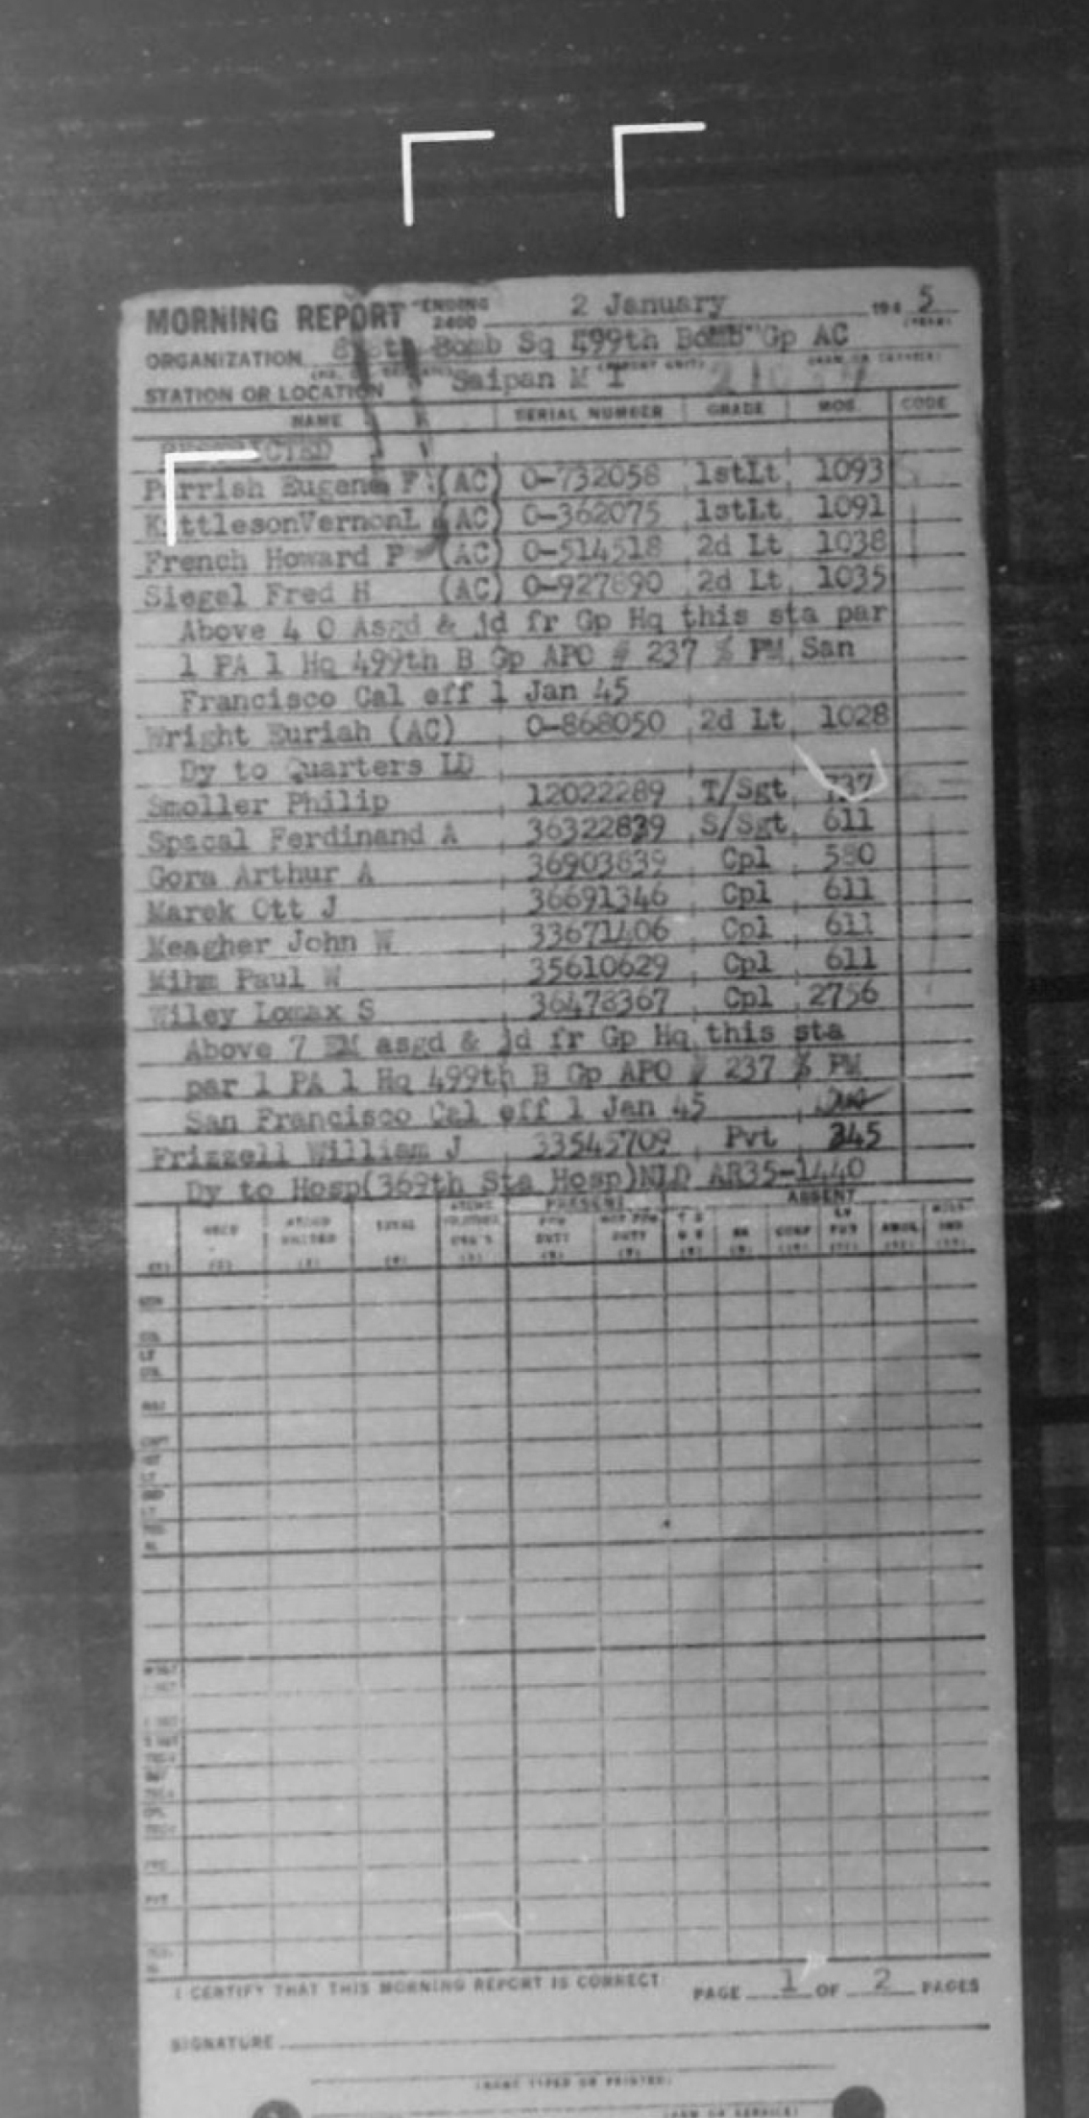 MORNING REPORT ENDING 2400 2 January 194 5
ORGANIZATION Bomb Sq 499th Bomb Gp AC
STATION OR LOCATION Saipan M I
NAME SERIAL NUMBER GRADE MOS. CODE
Parrish Eugene F (AC) O-732058 1stLt 1093
KittlesonVernonL (AC) O-362075 1stLt 1091
French Howard P (AC) O-514518 2d Lt 1038
Siegel Fred H (AC) O-927890 2d Lt 1035
Above 4 O Asgd & jd fr Gp Hq this sta par
1 PA 1 Hq 499th B Gp APO # 237 % PM San
Francisco Cal eff 1 Jan 45
Wright Euriah (AC) O-868050 2d Lt 1028
Dy to Quarters LD
Smoller Philip 12022289 T/Sgt 737
Spacal Ferdinand A 36322839 S/Sgt 611
Gora Arthur A 36903839 Cpl 580
Marek Ott J 36691346 Cpl 611
Meagher John W 33671406 Cpl 611
Mihm Paul W 35610629 Cpl 611
Wiley Lomax S 36478367 Cpl 2756
Above 7 EM asgd & jd fr Gp Hq this sta
par 1 PA 1 Hq 499th B Gp APO # 237 % PM
San Francisco Cal eff 1 Jan 45
Frizzell William J 33545709 Pvt 345
Dy to Hosp(369th Sta Hosp)NLD AR35-1440
PRESENT ABSENT
TOTAL
DUTY DUTY
I CERTIFY THAT THIS MORNING REPORT IS CORRECT PAGE 1 OF 2 PAGES
SIGNATURE
(NAME TYPED OR PRINTED)